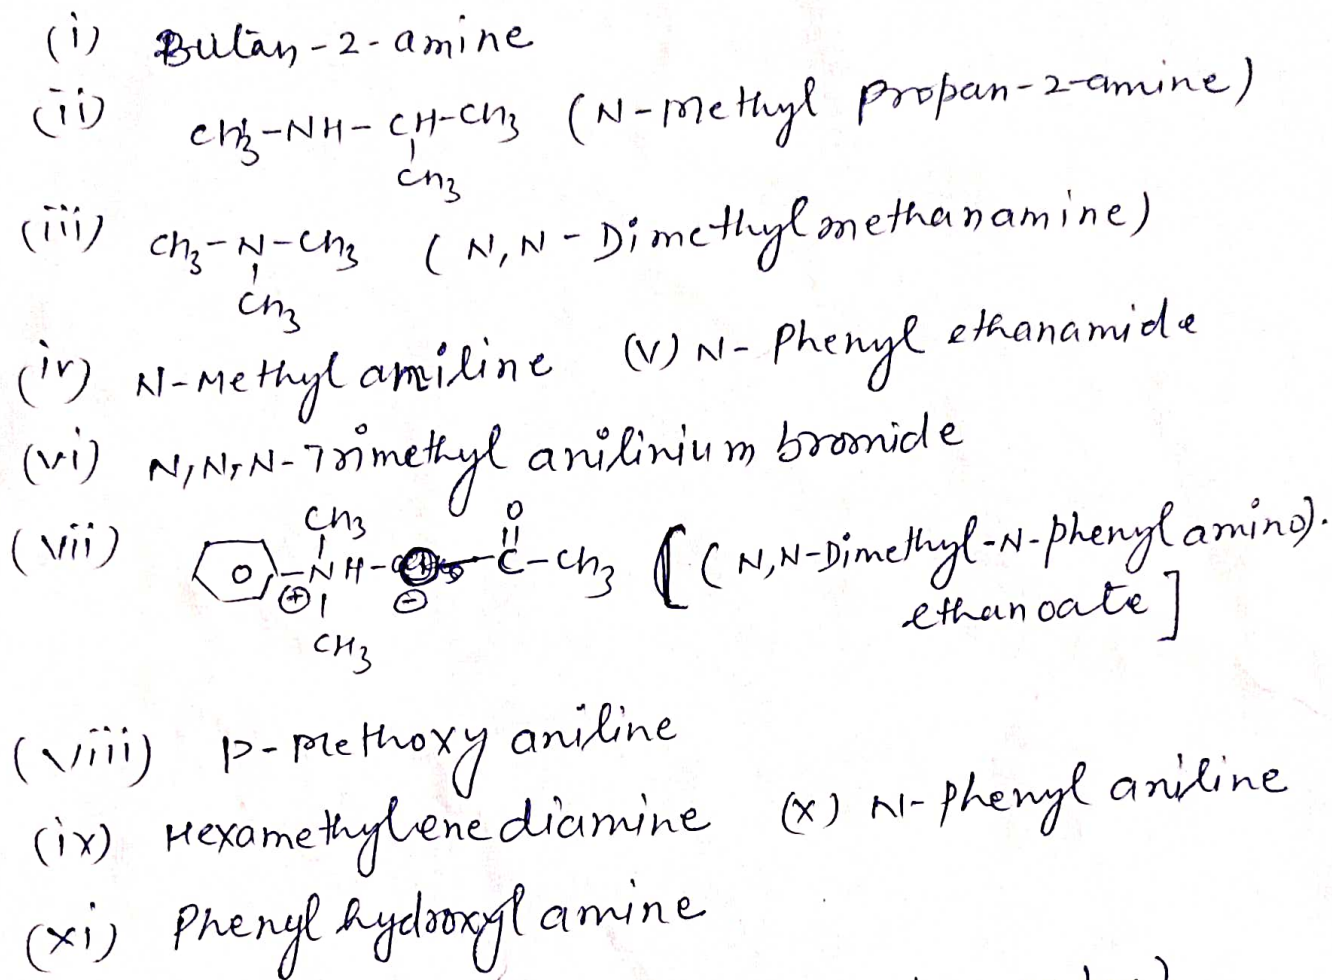 (i) Butan-2-amine
(ii) CH3-NH-CH-CH3 (N-Methyl propan-2-amine)
CH3
(iii) CH3-N-CH3 (N,N-Dimethylmethanamine)
CH3
(iv) N-Methyl aniline (V) N-Phenyl ethanamide
(vi) N,N,N-Trimethyl anilinium bromide
CH3 O
(vii) NH- C-CH3 [(N,N-Dimethyl-N-phenyl amino).
⊕ ⊖ ethanoate]
CH3
(viii) p-Methoxy aniline
(ix) Hexamethylene diamine (x) N-phenyl aniline
(xi) Phenyl hydroxyl amine